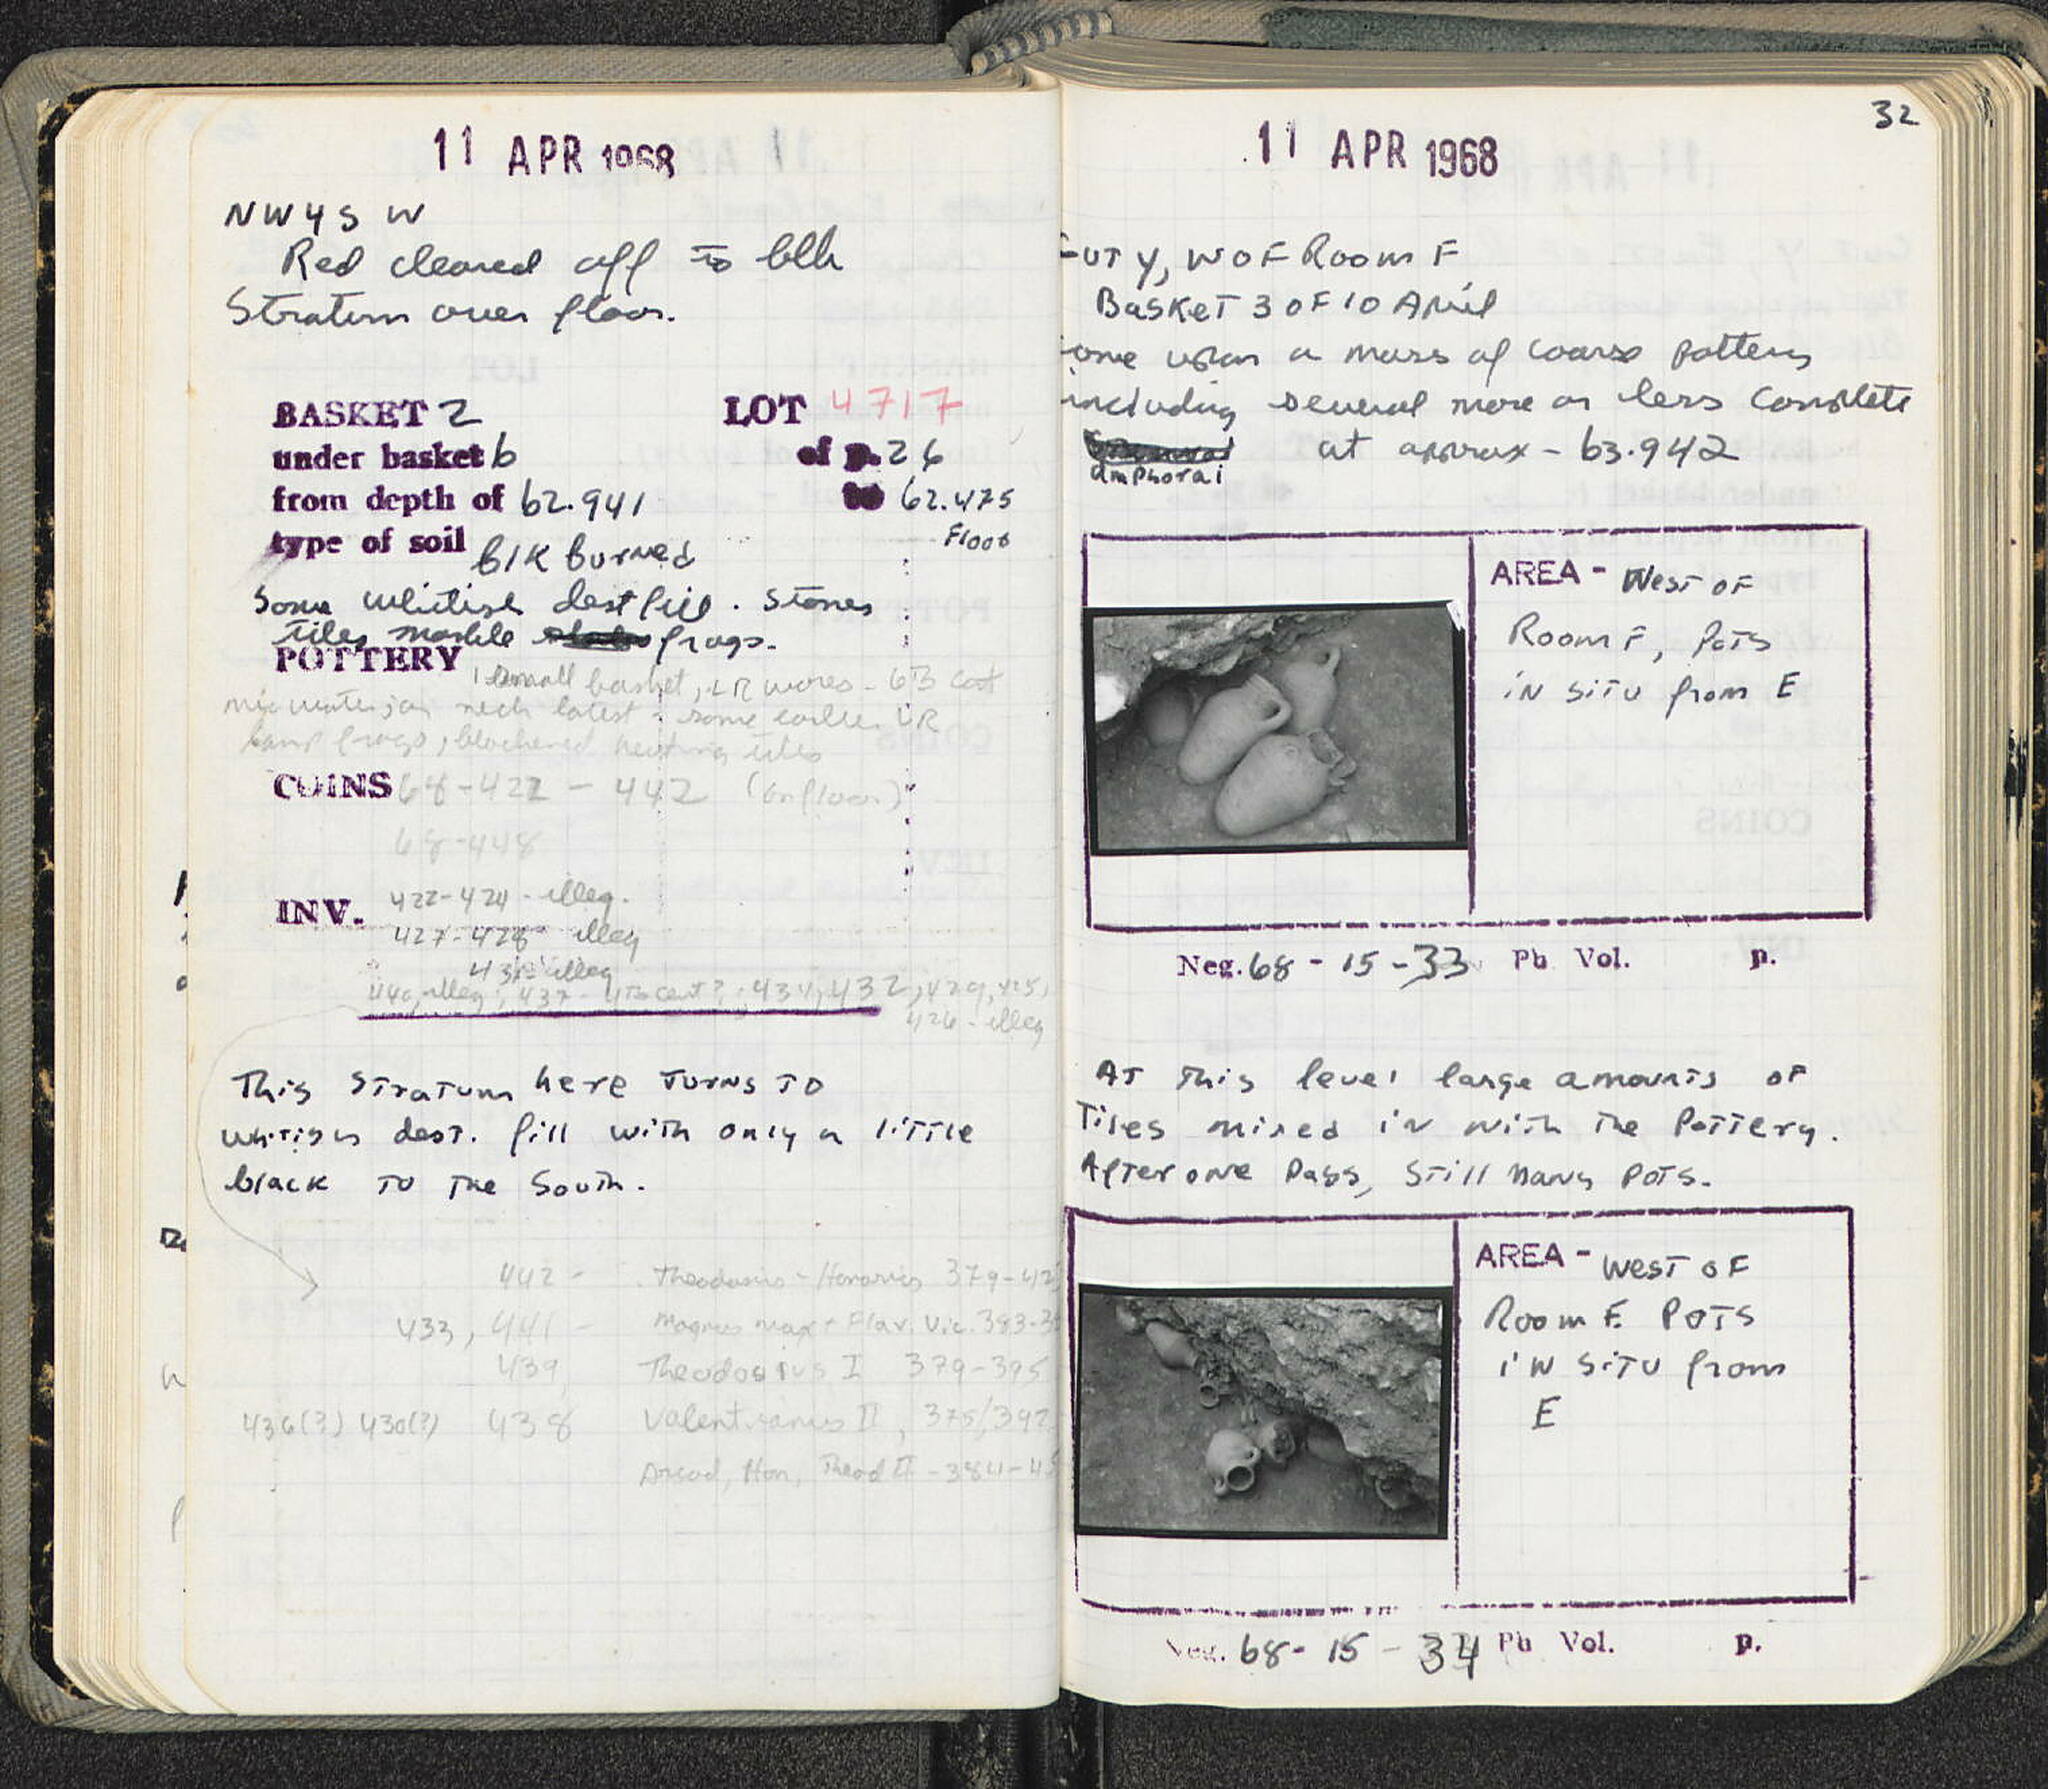 11 APR 1968
NW45 W
Red cleared off to blk
Stratum over floor.
BASKET 2 LOT 4717
under basket 6 of p. 26
from depth of 62.941 to 62.475
Floor
type of soil blk burned
Some whitish dest fill. Stones
tiles marble frags.
POTTERY 1 small basket, LR wares - 6B cent
neck latest - some earlier LR
lamp frags, blackened heating tiles
COINS 68-422 - 442 (on floor)
68-448
INV. 422-424 - illeg.
427-428 illeg
431- illeg
440, illeg; 437 - 4th cent?; 434, 432, 429, 425,
426 - illeg
This stratum here turns to
whitish dest. fill with only a little
black to the South.
442 - Theodosius - Honorius 379-423
433, 441 - Magnus Max + Flav. Vic. 383-38
439, Theodosius I 379-395
436(?) 430(?) 438 Valentinianus II, 375/392
Arcad, Hon, Theod II - 384-45
32
11 APR 1968
Cut Y, W of Room F
Basket 3 of 10 April
ome upon a mass of coarse pottery
including several more or less complete
amphorai at approx - 63.942
AREA - West of
Room F, Pots
in situ from E
Neg. 68 - 15 - 33 Ph Vol. p.
At this level large amounts of
Tiles mixed in with the Pottery.
After one Pass, still many Pots.
AREA - West of
Room F Pots
in situ from
E
Neg. 68 - 15 - 34 Ph Vol. p.